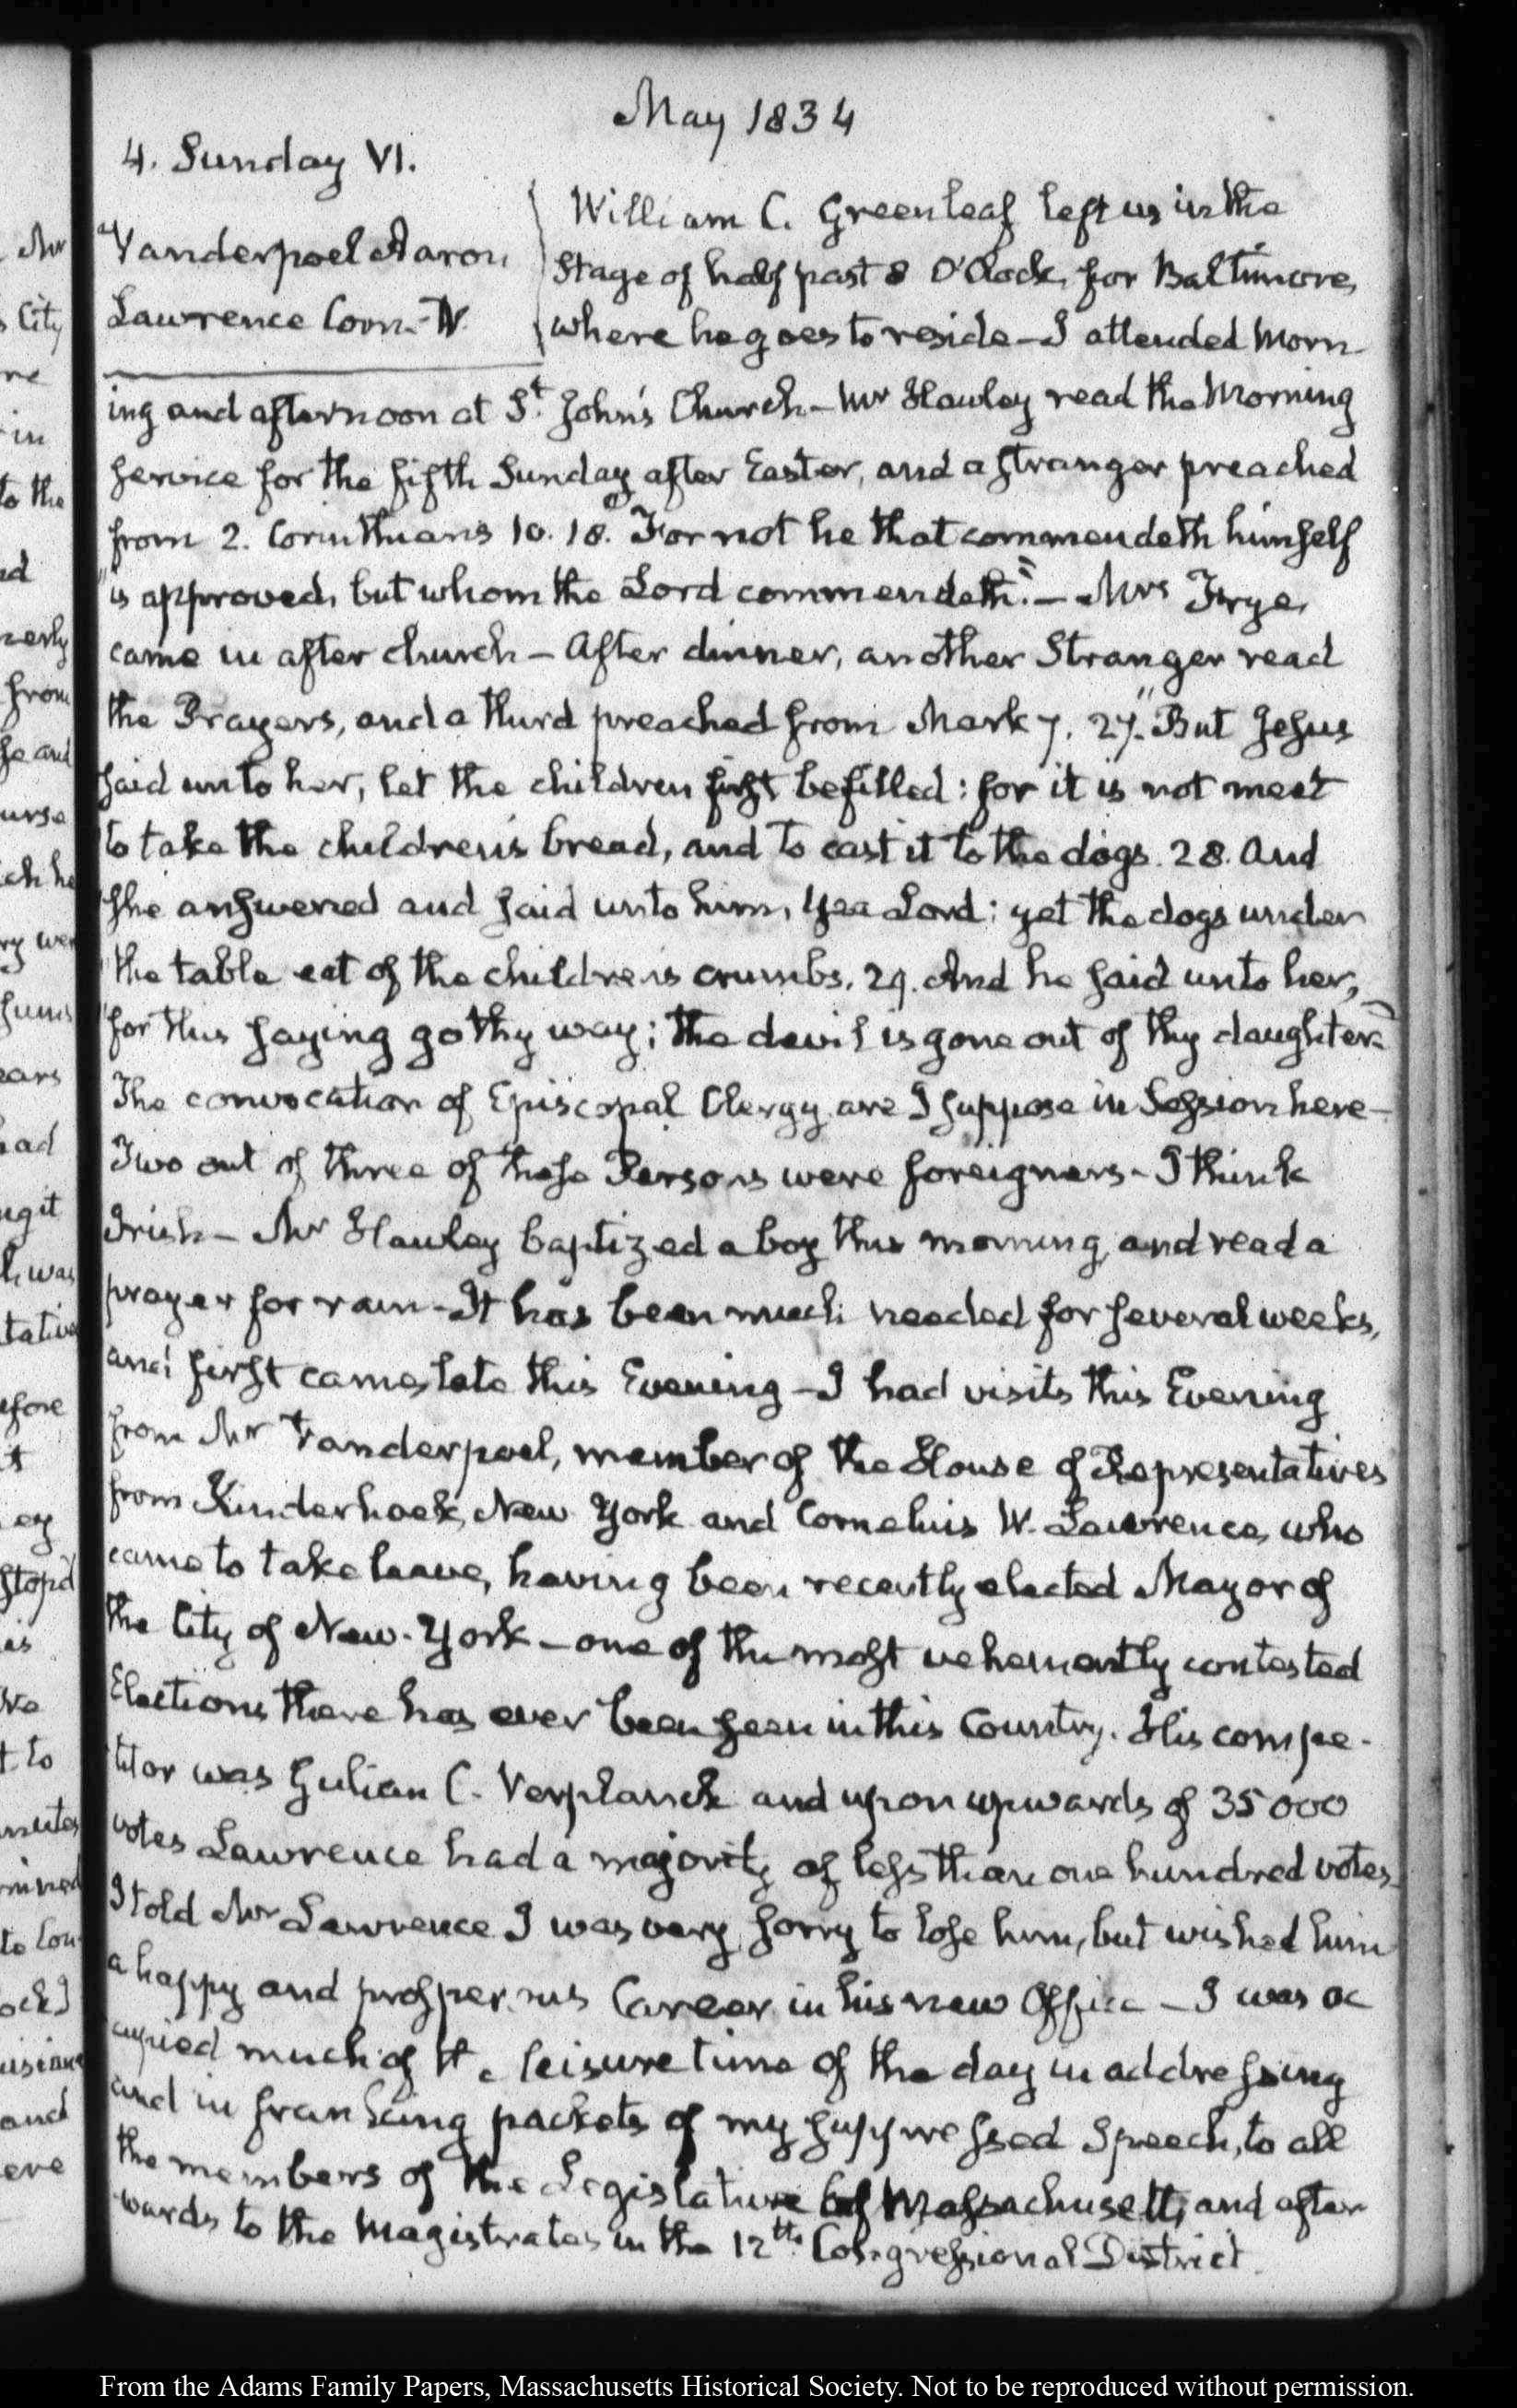 May 1834
4. Sunday VI.
Vanderpoel Aaron
Lawrence Corn. W.
William C. Greenleaf left us in the
Stage of half past 8 O'Clock, for Baltimore,
where he goes to reside – I attended Morn-
ing and afternoon at St. John's Church – Mr Hawley read the Morning
service for the fifth Sunday after Easter, and a stranger preached
from 2. Corinthians 10. 18. "For not he that commendeth himself
"is approved, but whom the Lord commendeth." – Mrs Frye,
came in after church – After dinner, another Stranger read
the Prayers, and a third preached from Mark 7. 27. "But Jesus
said unto her, let the children first be filled: for it is not meet
to take the children's bread, and to cast it to the dogs. 28. And
she answered and said unto him, Yea Lord: yet the dogs under
the table eat of the children's crumbs. 29. And he said unto her,
for this saying go thy way; the devil is gone out of thy daughter."
The convocation of Episcopal Clergy are I suppose in Session here –
Two out of three of these Persons were foreigners – I think
Irish – Mr Hawley baptized a boy this morning, and read a
prayer for rain – It has been much needed for several weeks,
and first came, late this Evening – I had visits this Evening
from Mr Vanderpoel, member of the House of Representatives
from Kinderhook, New York and Cornelius W. Lawrence, who
came to take leave, having been recently elected Mayor of
the City of New-York – one of the most vehemently contested
Elections there has ever been seen in this Country. His compe-
titor was Gulian C. Verplanck and upon upwards of 35000
votes Lawrence had a majority of less than one hundred votes.
I told Mr Lawrence I was very sorry to lose him, but wished him
a happy and prosperous Career in his new Office – I was oc
cupied much of the leisure time of the day in addressing
and in franking packets of my suppressed Speech, to all
the members of the Legislature of Massachusetts, and after
wards to the Magistrates in the 12th Congressional District.
Mr
City
re
in
to the
nerly
from
se and
urse
ch he
ry wer
ears
ad
h was
tative
efore
stop'd
t to
inutes
to Con
and
ere
From the Adams Family Papers, Massachusetts Historical Society. Not to be reproduced without permission.